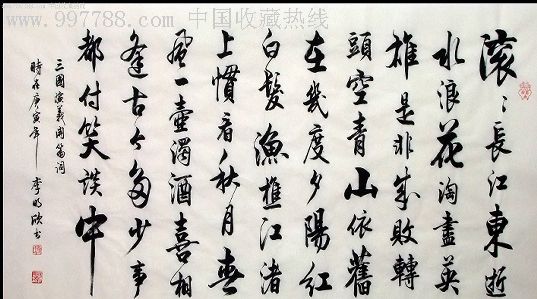 www.997788.com 中国收藏热线
滚〻長江東逝
水浪花淘盡英
雄是非成敗轉
頭空青山依舊
在幾度夕陽紅
白髮漁樵江渚
上慣看秋月春
風一壺濁酒喜相
逢古今多少事
都付笑談中
三國演義開篇詞
時在庚寅年 李明书